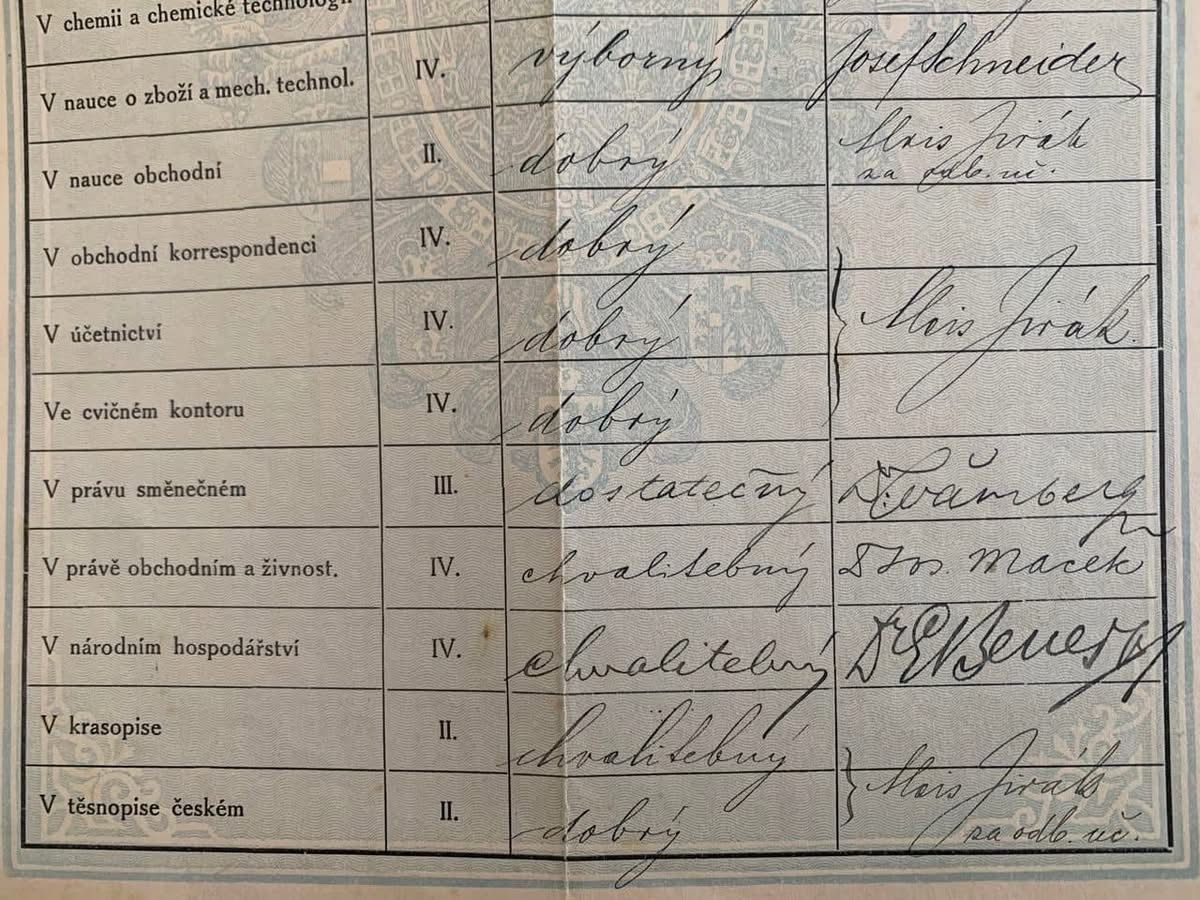 V chemii a chemické technologii
V nauce o zboží a mech. technol. IV. výborný Josef Schneider
V nauce obchodní II. dobrý Alois Jirák
za odb. uč.
V obchodní korrespondenci IV. dobrý
V účetnictví IV. dobrý Alois Jirák.
Ve cvičném kontoru IV. dobrý
V právu směnečném III. dostatečný
V právě obchodním a živnost. IV. chvalitebný Dr Jos. Macek
V národním hospodářství IV. chvalitebný Dr E Beneš
V krasopise II. chvalitebný
V těsnopise českém II. dobrý Alois Jirák
za odb. uč.